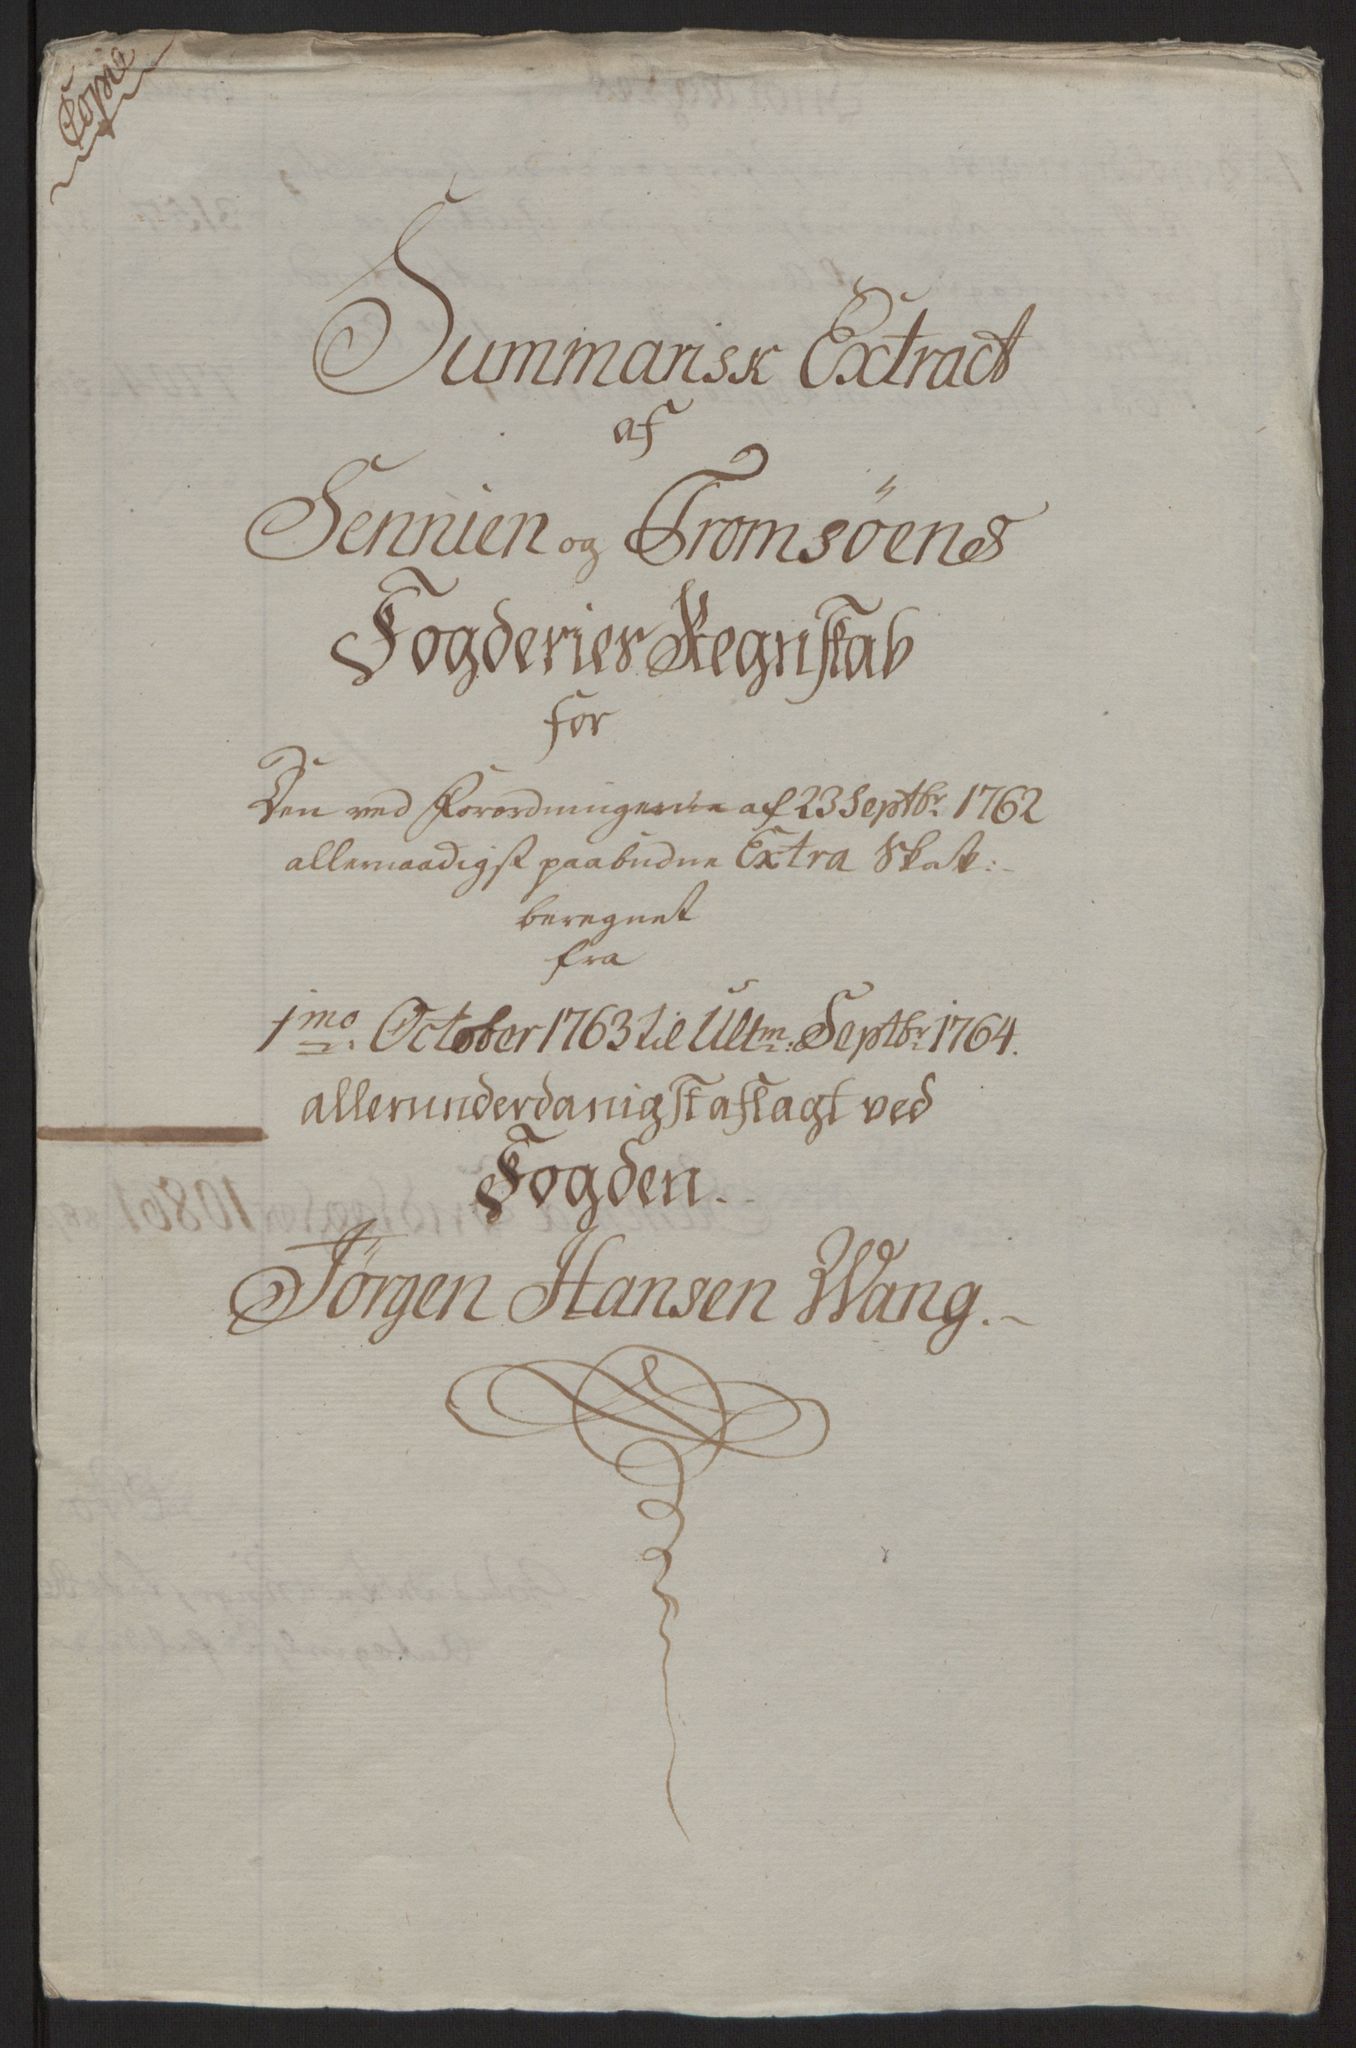 Copie
Summarisk Extract
af
Sennien og Tromsöens
Fogderies Regnskab
for
Den ved Forordningerne af 23 Septbr: 1762
allernaadigst paabudne Extra Skat:
beregnet
fra
1mo: October 1763 til Ultm: Septbr: 1764.
allerunderdanigst aflagt ved
Fogden.
Jörgen Hansen Wang.